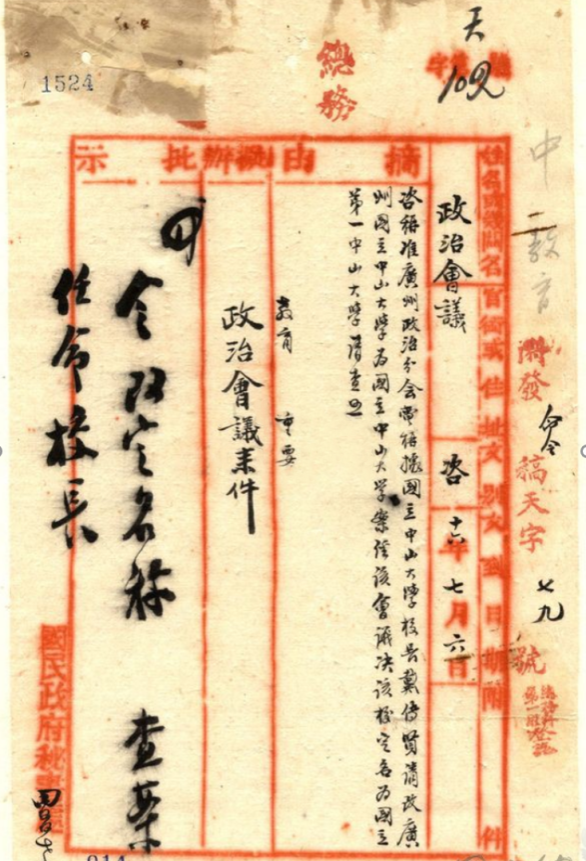 1524
總務
天
109
號
中
教育
發
稿天字
七九
號
政治會議
咨
十六年七月六日
附
件
摘由
擬辦
批示
咨稱准廣州政治分会電稱據國立中山大學校長戴傳賢請改廣
州國立中山大學為國立中山大学案經該會議决該校定名為國立
第一中山大學請查照
教育
重要
政治會議来件
令改定名称
查案
任命校長
國民政府秘書處
214